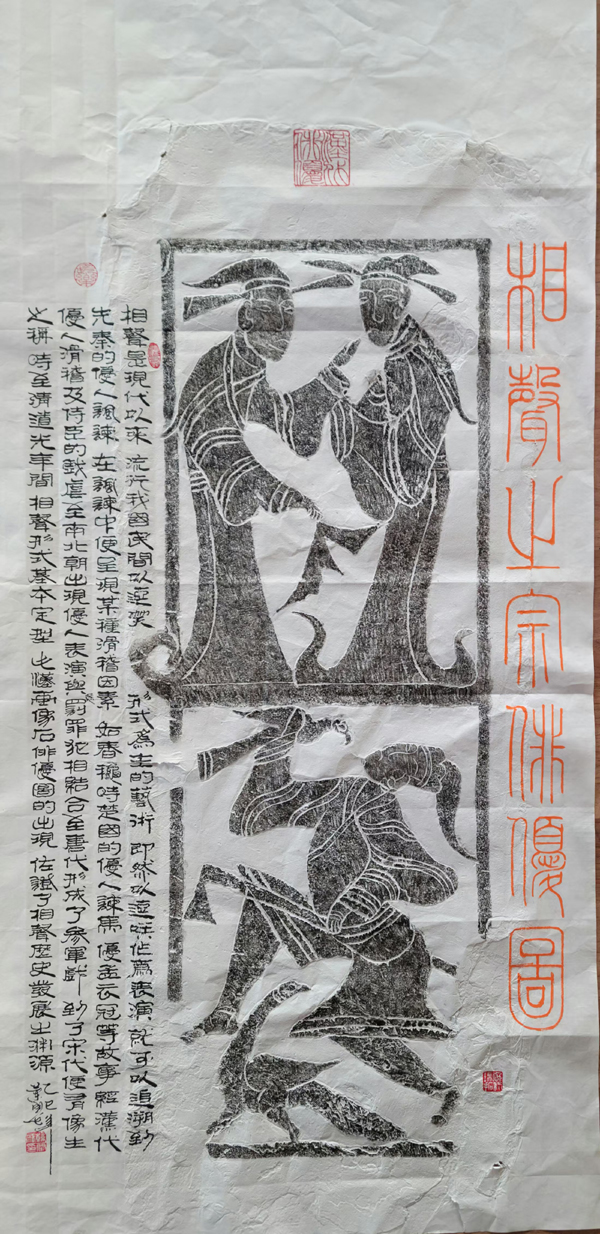 漢代俳優
相聲之宗俳優圖
相聲是現代以來 流行我國民間以逗樂 形式為主的藝術 即然以逗 作為表演就可以追溯到
先秦的優人諷諫 在諷諫中便呈現某種滑稽因素 如春穐時楚國的優人諫馬 優孟衣冠等故事 經漢代
優人滑稽及侍臣的戲虐至南北朝出現優人表演與罰罪犯相結合至唐代形成了參軍戲 到了宋代便有像生
之稱 時至清道光年間 相聲形式基本定型 此漢畫像石俳優圖的出現 佐證了相聲歷史發展之淵源